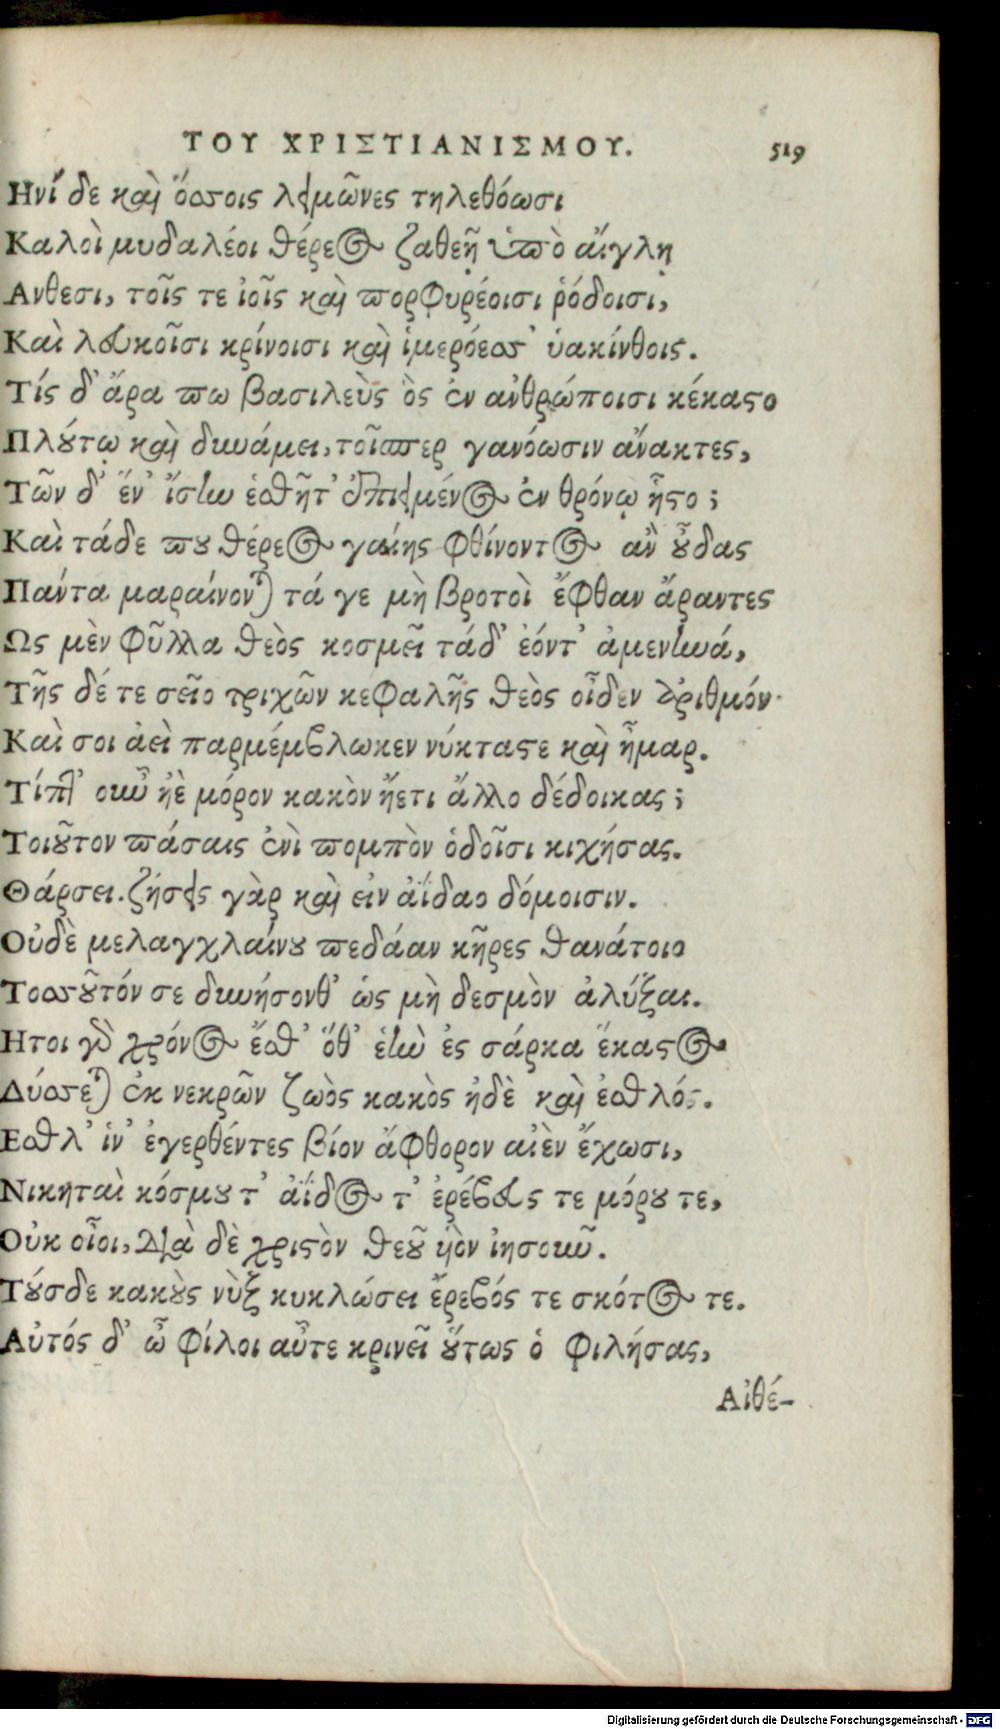 ΤΟΥ ΧΡΙΣΤΙΑΝΙΣΜΟΥ. 519
Ηνί δε καὶ ὅσσοις λειμῶνες τηλεθόωσι
Καλοὶ μυδαλέοι θέρεος ζαθεῇ ὑπὸ αἴγλῃ
Ανθεσι, τοῖς τε ἰοῖς καὶ πορφυρέοισι ῥόδοισι,
Καὶ λευκοῖσι κρίνοισι καὶ ἱμερόεσσ' ὑακίνθοις.
Τίς δ' ἄρα πω βασιλεὺς ὃς ἐν ἀνθρώποισι κέκαστο
Πλούτῳ καὶ δυνάμει, τοῖσπερ γανόωσιν ἄνακτες,
Τῶν δ' ἕν' ἴσην ἐσθῆτ' ἐπιειμένος ἐν θρόνῳ ἧστο;
Καὶ τάδε που θέρεος γαίης φθίνοντος ἂν οὖδας
Πάντα μαραίνονται τά γε μὴ βροτοὶ ἔφθαν ἄραντες
Ως μὲν φῦλλα θεὸς κοσμεῖ τάδ' ἐόντ' ἀμενηνά,
Τῆς δέ τε σεῖο τριχῶν κεφαλῆς θεὸς οἶδεν ἀριθμόν.
Καὶ σοι ἀεὶ παρμέμβλωκεν νύκταστε καὶ ἦμαρ.
Τίπτ' οὖν ἠὲ μόρον κακὸν ἤετι ἄλλο δέδοικας;
Τοιοῦτον πάσαις ἐνὶ πομπὸν ὁδοῖσι κιχήσας.
Θάρσει. ζήσεις γὰρ καὶ εἰν ἀΐδαο δόμοισιν.
Οὐδὲ μελαγχλαίνου πεδάαν κῆρες θανάτοιο
Τοσσοῦτόν σε δυνήσονθ' ὡς μὴ δεσμὸν ἀλύξαι.
Ητοι γὰρ χρόνος ἔσθ' ὅθ' ἑὴν ἐς σάρκα ἕκαστος
Δύσσεται ἐκ νεκρῶν ζωὸς κακὸς ἠδὲ καὶ ἐσθλός.
Εσθλ' ἱν' ἐγερθέντες βίον ἄφθορον αἰὲν ἔχωσι,
Νικηταὶ κόσμου τ' ἀΐδος τ' ἐρέβευς τε μόρου τε,
Οὐκ οἶοι, διὰ δὲ χριστὸν θεοῦ υἱὸν ἰησοῦν.
Τούσδε κακοὺς νὺξ κυκλώσει ἔρεβός τε σκότος τε.
Αὐτός δ' ὦ φίλοι αὖτε κρινεῖ οὕτως ὁ φιλήσας,
Αἰθέ-
Digitalisierung gefördert durch die Deutsche Forschungsgemeinschaft - DFG